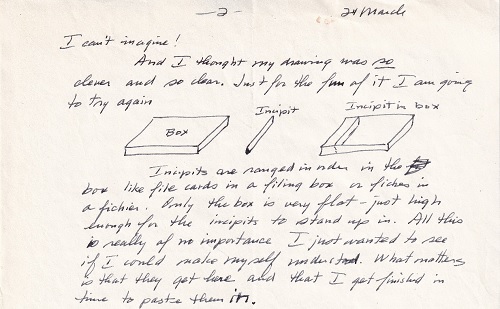 —2— 24 March
I can't imagine!
And I thought my drawing was so
clever and so clear. Just for the fun of it I am going
to try again
Incipit Incipit in box
Box
Incipits are ranged in order in the
box like file cards in a filing box or fiches in
a fichier. Only the box is very flat - just high
enough for the incipits to stand up in. All this
is really of no importance I just wanted to see
if I could make myself understood. What matters
is that they get here and that I get finished in
time to paste them in.